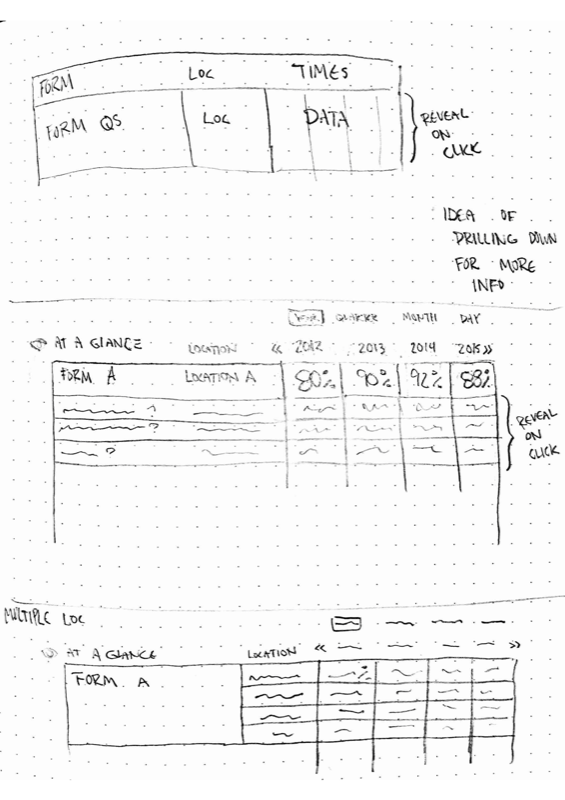 FORM LOC TIMES
FORM QS LOC DATA
REVEAL
ON
CLICK
IDEA OF
DRILLING DOWN
FOR MORE
INFO
YEAR MONTH DAY
AT A GLANCE LOCATION « 2012 2013 2014 2015 »
FORM A LOCATION A 80% 90% 92% 88%
?
?
?
REVEAL
ON
CLICK
MULTIPLE LOC
AT A GLANCE LOCATION « »
FORM A %